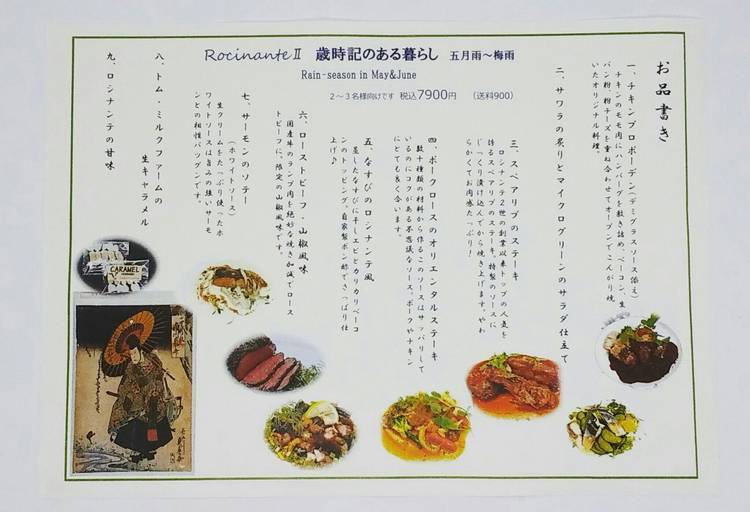 Rocinante Ⅱ 歳時記のある暮らし 五月雨～梅雨
Rain-season in May&June
2～3名様向けです 税込7900円 (送料900)
お品書き
一、チキンブロポーデン(デミグラスソース添え)
チキンのモモ肉にハンバーグを敷き詰め、ベーコン、生
パン粉、粉チーズを重ね合わせてオーブンでこんがり焼
いたオリジナル料理。
二、サワラの炙りとマイクログリーンのサラダ仕立て
三、スペアリブのステーキ
ロシナンテ2世の創業以来トップの人気を
誇るスペアリブのステーキ。特製のソースに
じっくり漬け込んでから焼き上げます。やわ
らかくてお肉巻たっぷり！
四、ポークロースのオリエンタルステーキ
数十種類の材料から作るこのソースはサッパリして
いるのにコクがある不思議なソース。ポークやチキン
にとても良く合います。
五、なすびのロシナンテ風
蒸したなすびに干しエビとカリカリベーコ
ンのトッピング。自家製ポン酢でさっぱり仕
上げ♪
六、ローストビーフ・山椒風味
国産牛のランプ肉を絶妙な焼き加減でロース
トビーフに。限定の山椒風味です。
七、サーモンのソテー
(ホワイトソース)
生クリームをたっぷり使ったホ
ワイトソースは旨みの強いサーモ
ンとの相性バツグンです。
八、トム・ミルクファームの
生キャラメル
九、ロシナンテの甘味
CARAMEL